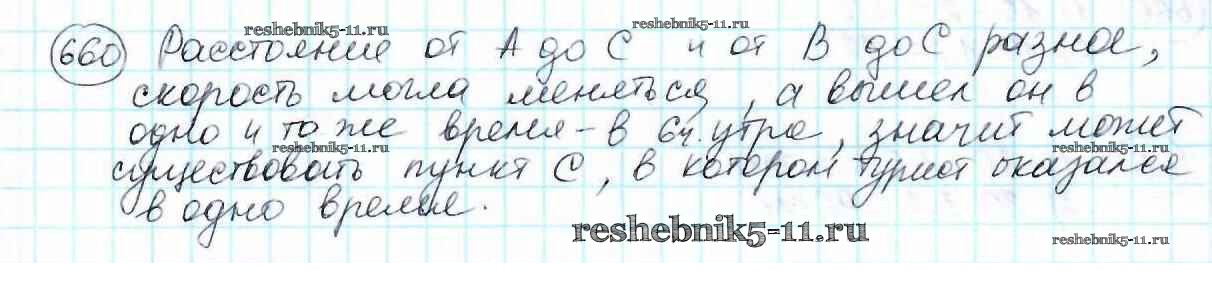 reshebnik5-11.ru
660 Расстояние от А до С и от В до С разное,
скорость могла меняться, а вышел он в
одно и то же время - в 6ч. утра, значит может
reshebnik5-11.ru
reshebnik5-11.ru
существовать пункт С, в котором турист оказался
в одно время.
reshebnik5-11.ru
reshebnik5-11.ru